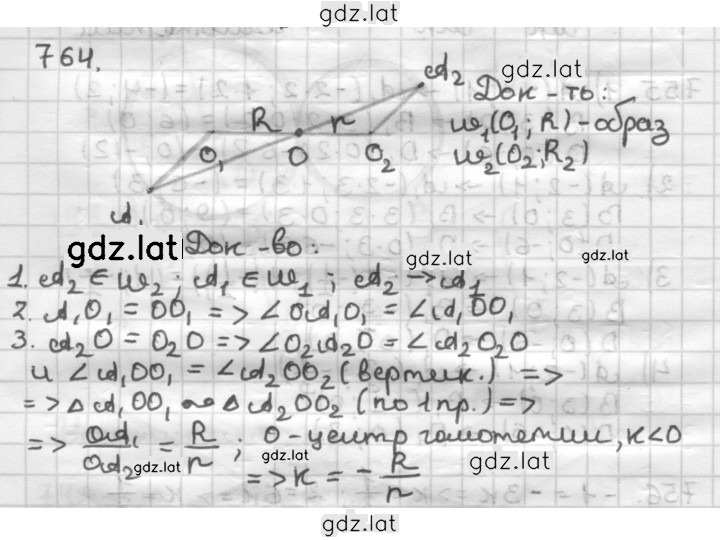 gdz.lat
764.
A₂
gdz.lat
Док-ть:
R r
ω₁(O₁; R) - образ
O₁ O O₂
ω₂(O₂; R₂)
A₁
gdz.lat Док-во:
gdz.lat gdz.lat
1. A₂ ∈ ω₂; A₁ ∈ ω₁; A₂ → A₁
2. A₁O₁ = OO₁ => ∠OA₁O₁ = ∠A₁OO₁
3. A₂O = O₂O => ∠O₂A₂O = ∠A₂O₂O
и ∠A₁OO₁ = ∠A₂OO₂ (вертик.) =>
=> △A₁OO₁ ∾ △A₂OO₂ (по 1 пр.) =>
=> OA₁/OA₂ = R/r; O - центр гомотетии, k<0
gdz.lat gdz.lat gdz.lat
=> k = - R/r
gdz.lat